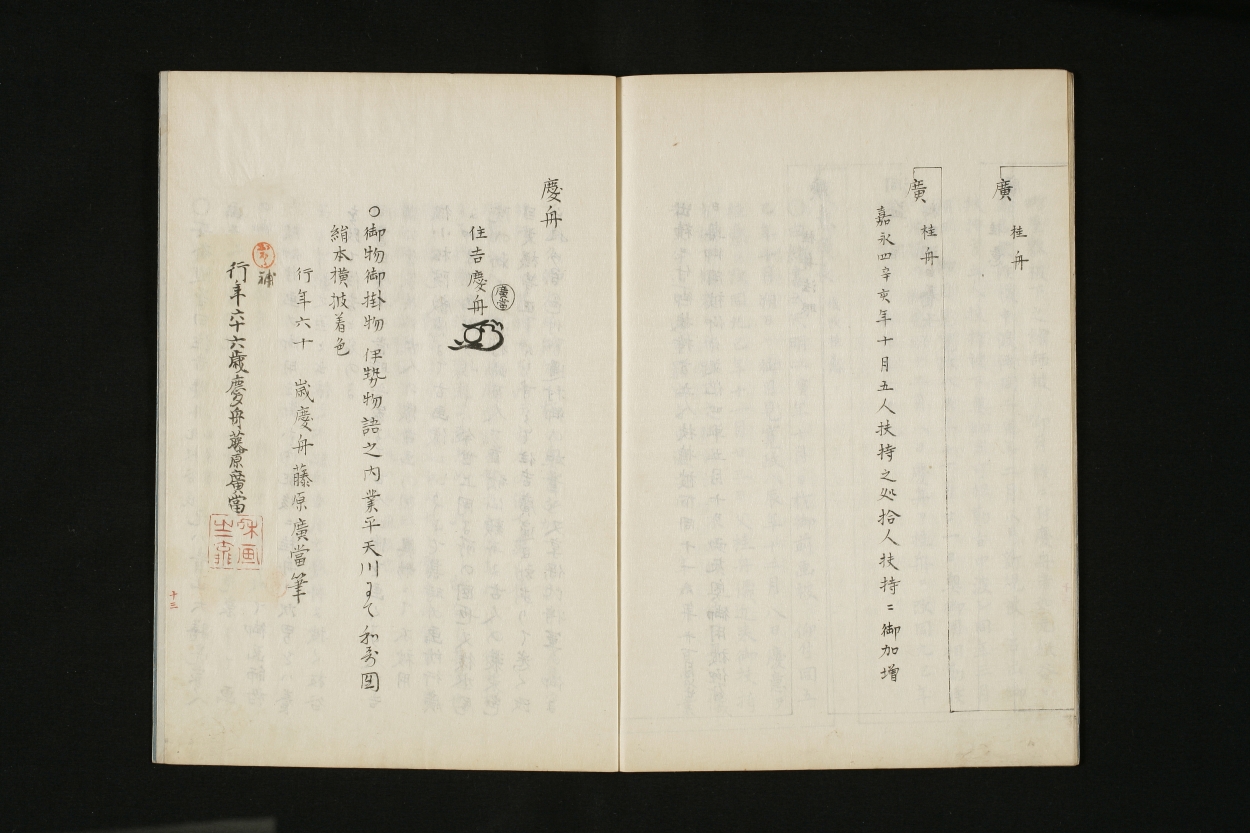 廣
桂舟
廣
桂舟
嘉永四辛亥年十月五人扶持之処拾人扶持ニ御加増
慶舟
住吉慶舟
廣當
○御物御掛物 伊勢物語之内業平天川にて和哥図
絹本横披着色
行年六十 歳慶舟藤原廣當筆
補
行年六十六歳慶舟藤原廣當
十三